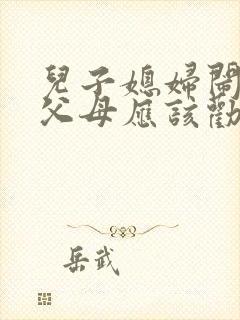 兒子媳婦鬧
父母應該勸
岳武